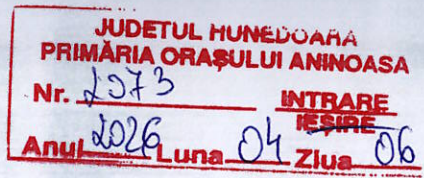 JUDEȚUL HUNEDOARA
PRIMĂRIA ORAȘULUI ANINOASA
Nr. 2973 INTRARE
IEȘIRE
Anul 2026 Luna 04 Ziua 06